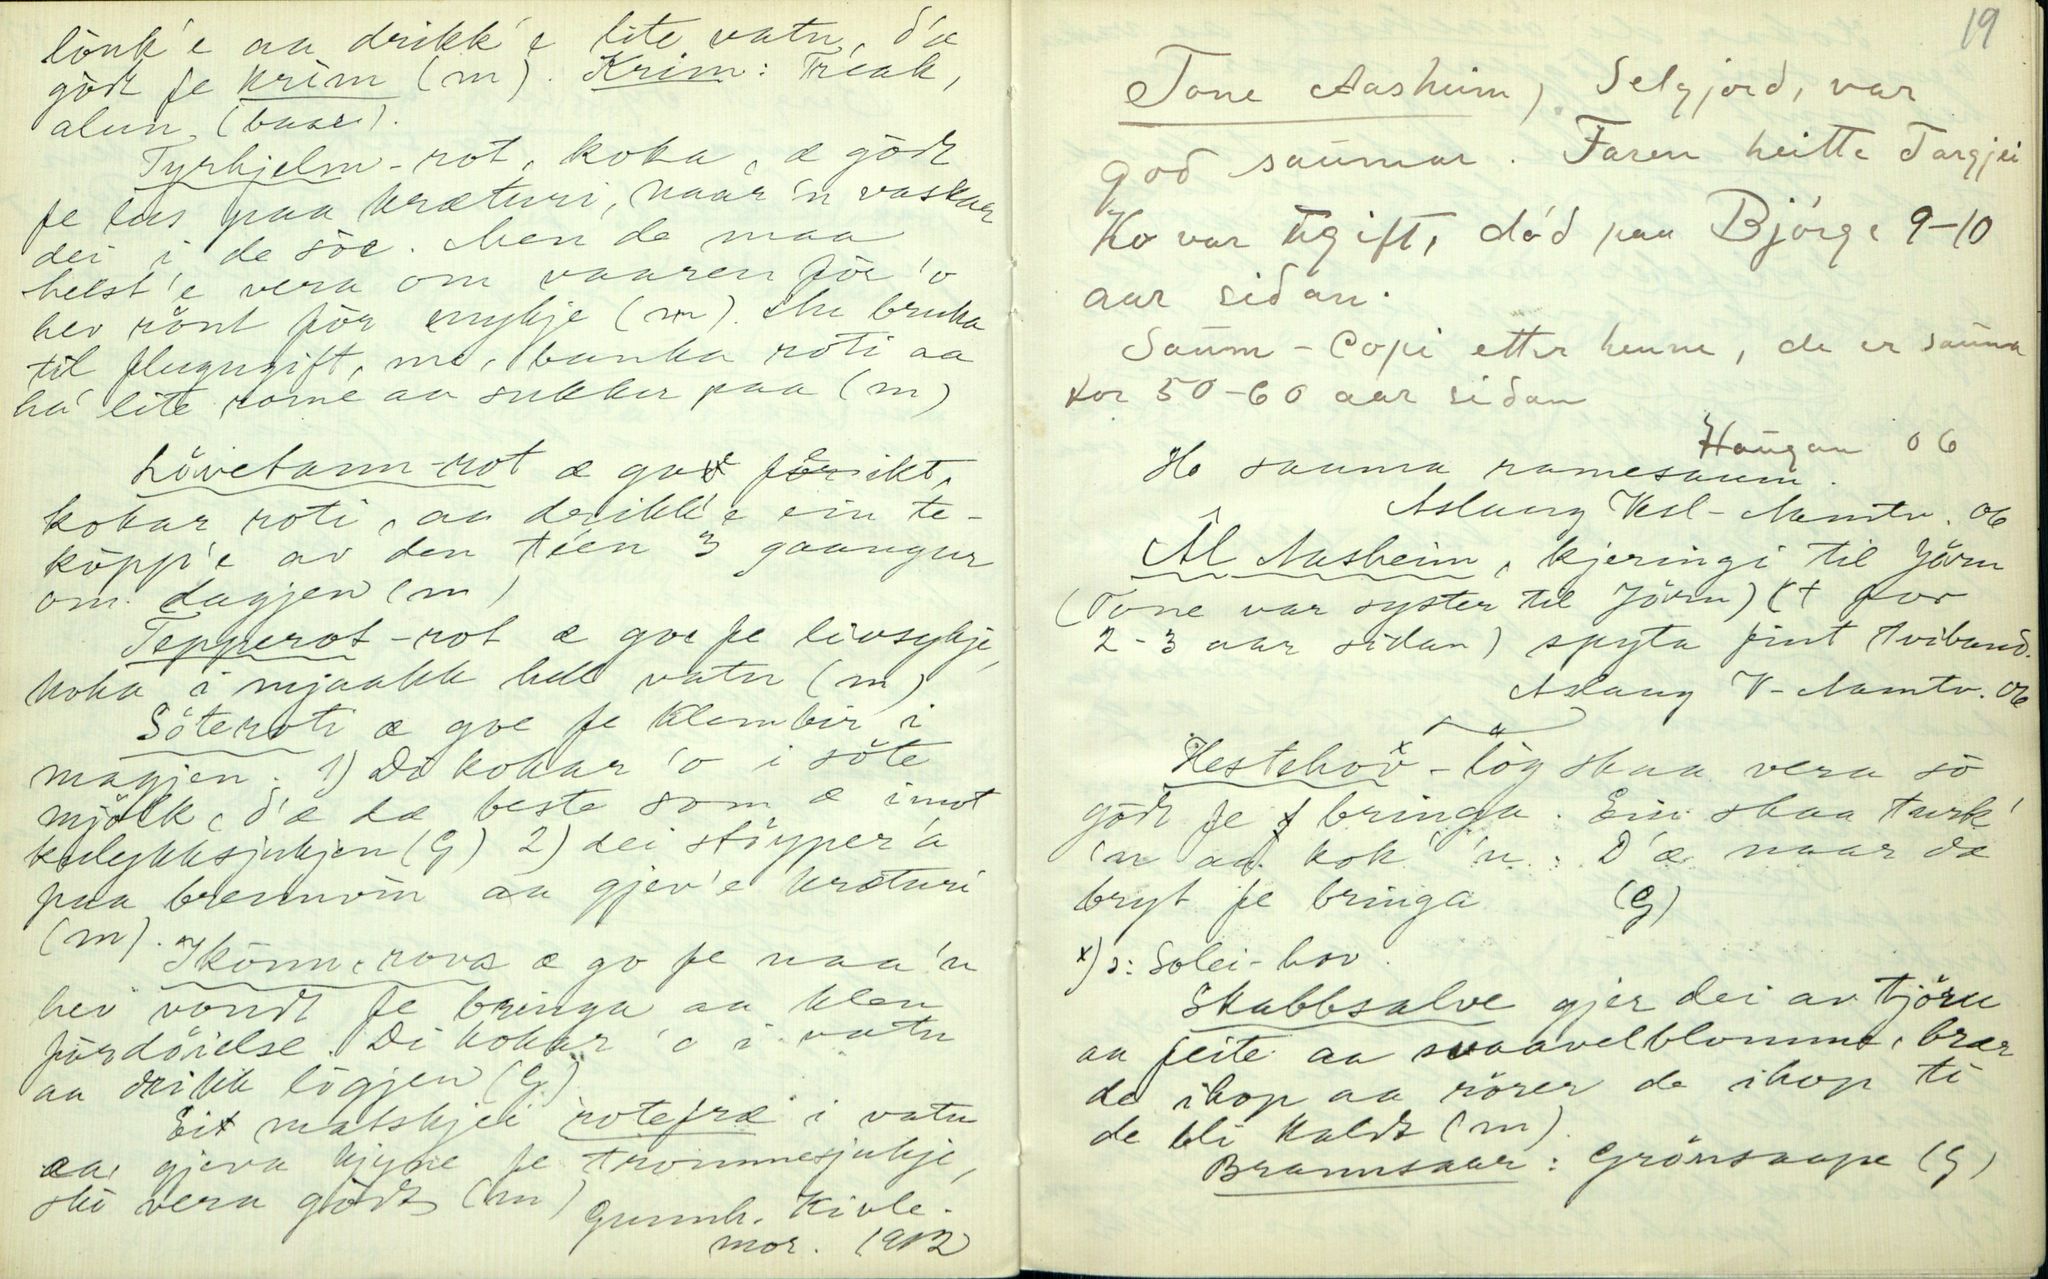 lönk'e aa drikk'e lite vatn, d'æ
gödt fe krim (m). Krim: Treak,
alun, (bære).
Tyrhjelm-rot, koka, æ gödt
fe lus paa kræturi, naar 'n vaskar
dei i de söe. Men de maa
helst'e vera om vaaren för 'o
hev rönt för mykje (m). Ska bruka
til flugugift, me, banka roti aa
ha lite röme aa sukker paa (m)
Lövetann-rot æ goe för ikt,
kokar roti, aa drikk'e ein te-
köpp'e av den téen 3 gaangur
om dagjen (m)
Tepperot-rot æ goe fe livsykje,
koka i mjaakk hell vatn (m)
Söteroti æ goe fe klembir i
magjen. 1) Di kokar 'o i söte
mjölk, d'æ da beste som æ imot
kulykksjukjen (G) 2) dei stöyper'a
paa brennvin aa gjev'e kræturi
(m).
Skönnerova æ go fe naa'n
hev vondt fe bringa aa klen
fördöielse. Di kokar 'o i vatn
aa drikk lögjen (G)
Eit matskjei rotefræ i vatn
aa gjeva kjyne fe trommesjukje,
ska vera gödt (m)
Gunnh. Kivle.
mor. 1912
19
Tone Aasheim, Selgjord, var
god saumar. Faren heitte Targjei
Ho var ugift, död paa Björge 9-10
aar sidan.
Saum-Copi etter henne, de er sauma
for 50-60 aar sidan
Haugan 06
Ho sauma ramesaum.
Aslaug Vesl-Namtv. 06
Ål Aasheim, kjeringi til Jörn
(Tone var syster til Jörn) († for
2-3 aar sidan) spyta fint tviband.
Aslaug V-Namtv. 06
Hestehov x - lög skaa vera so
gödt fe bringa. Ein skaa turk'
'n aa kok' 'n. D'æ naar da
bryt fe bringa (G)
x) ɔ: Solei-hov.
Skabbsalve gjer dei av tjöru
aa feite aa svaavelblomme, brær
de ihop aa rörer de ihop ti
de bli kaldt (m).
Brannsaar: Grönsaape (G)